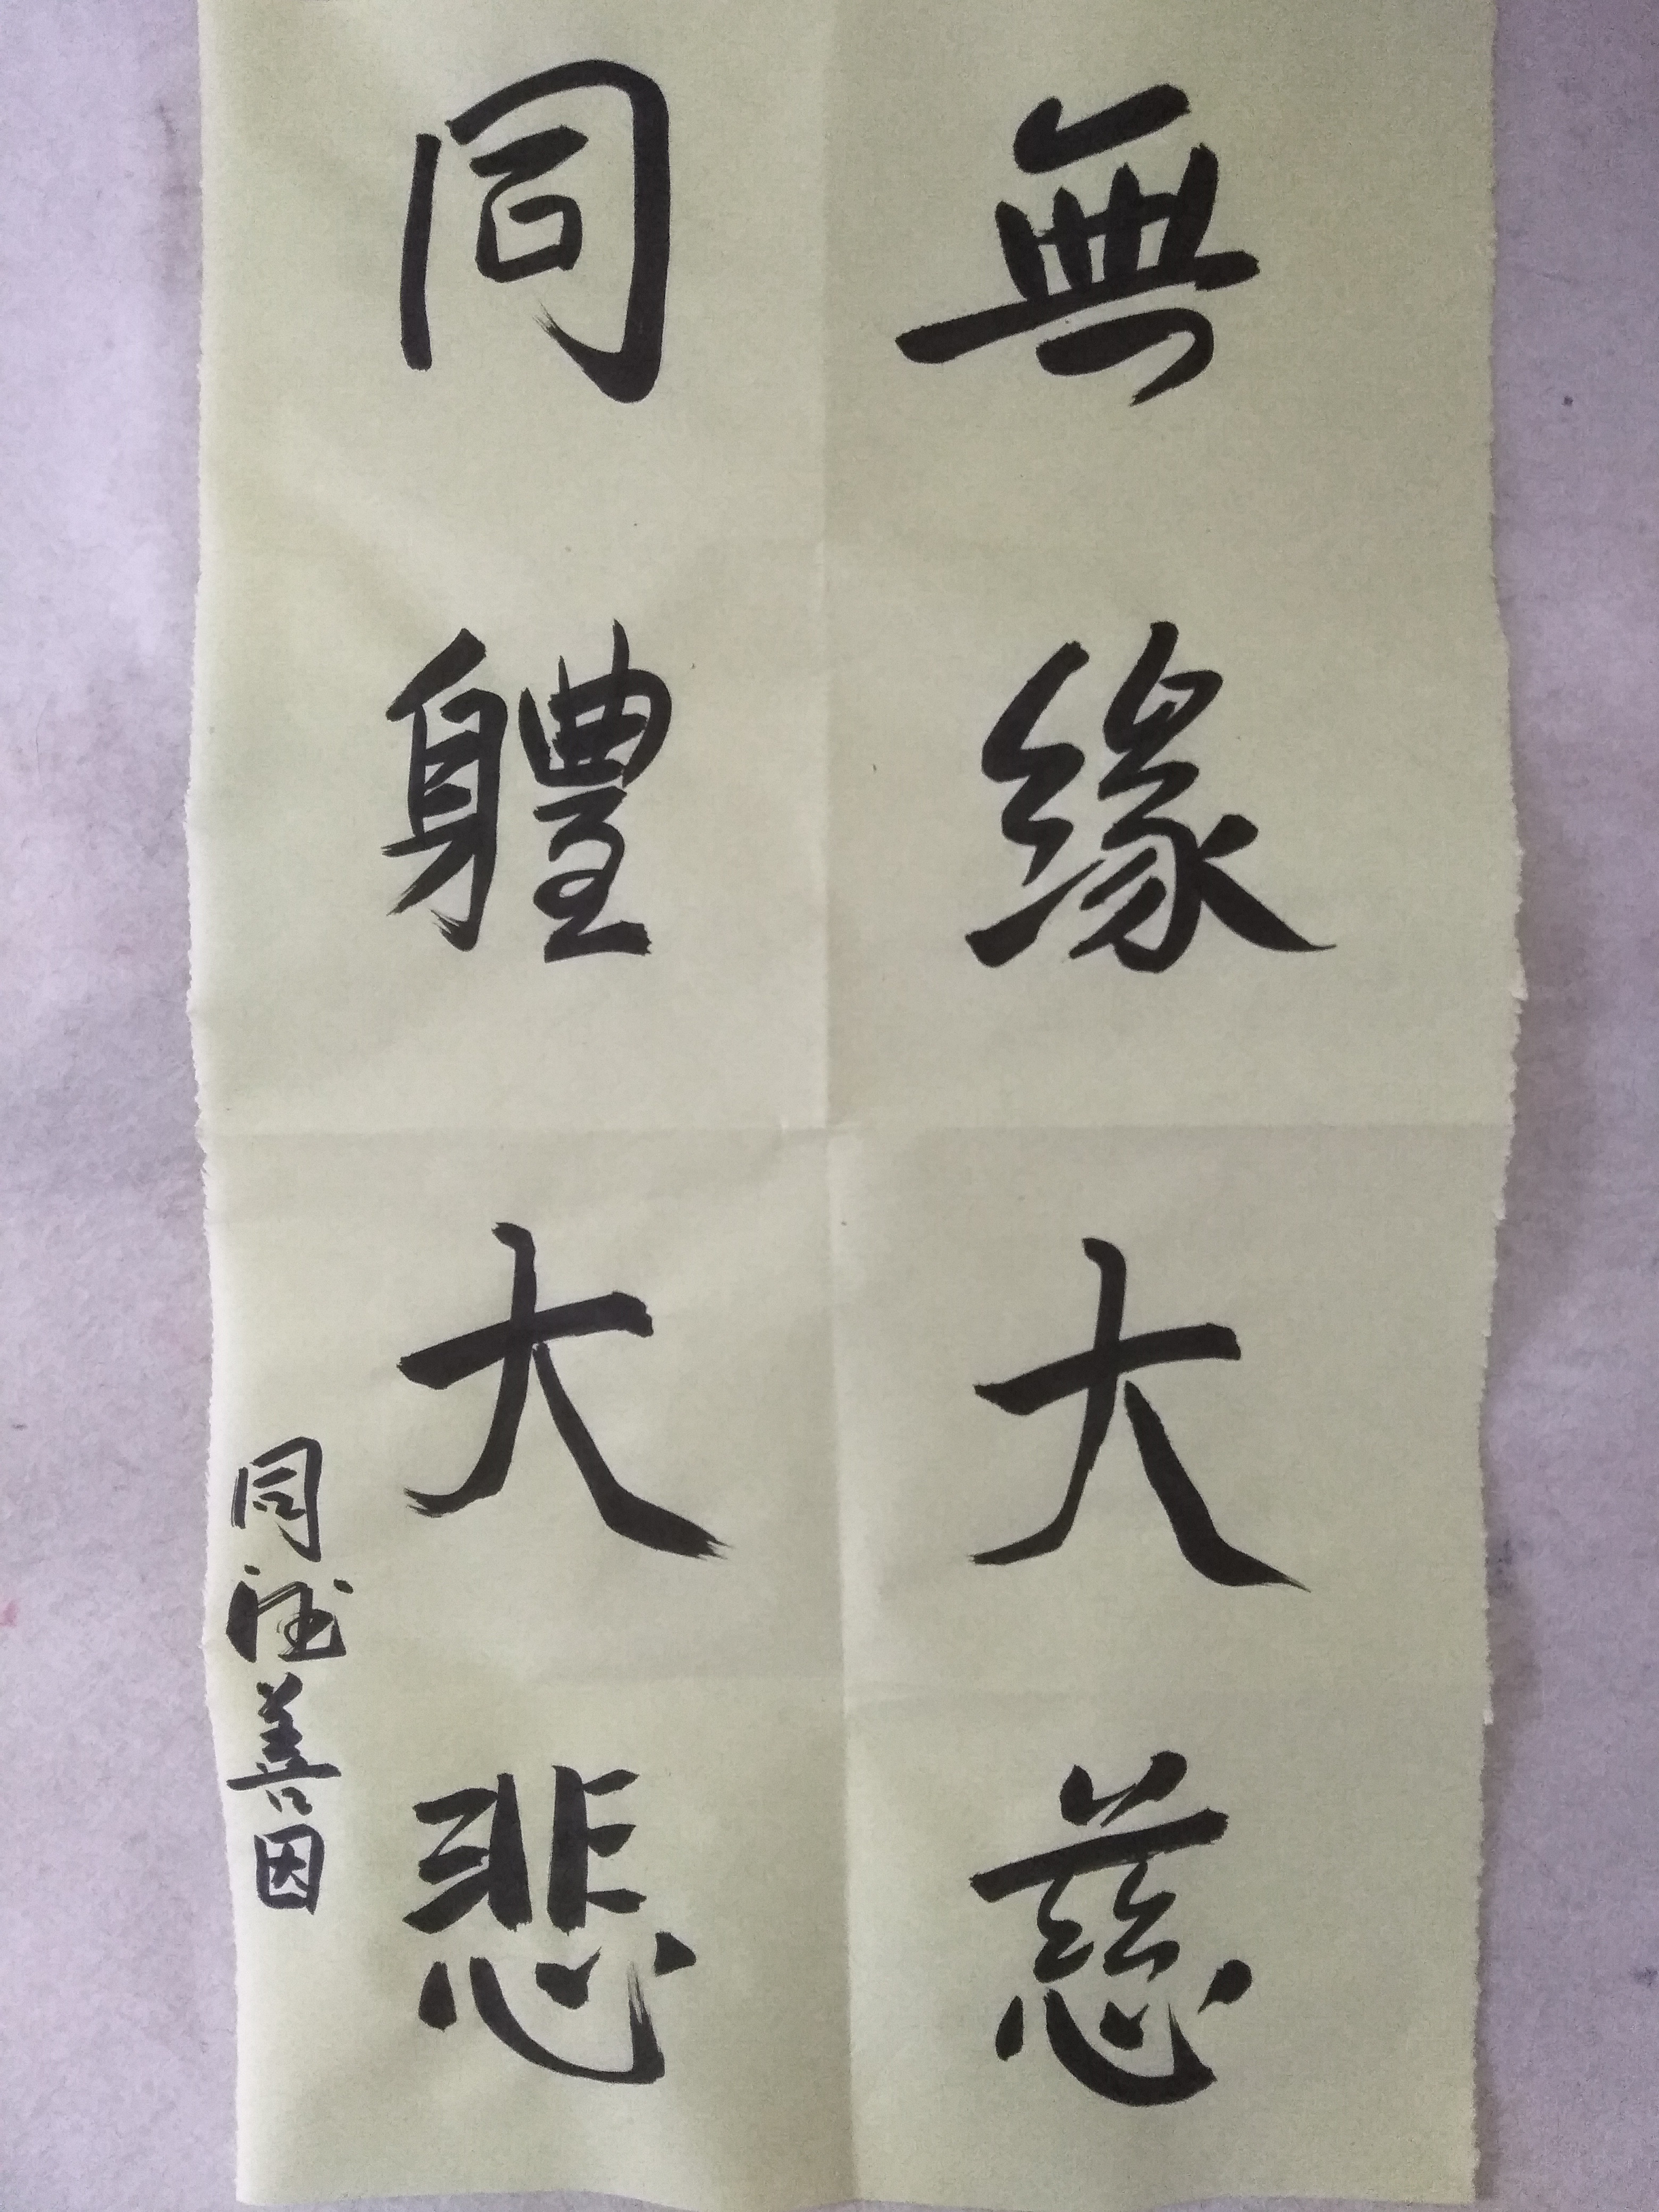 無緣大慈
同軆大悲
同誠善因